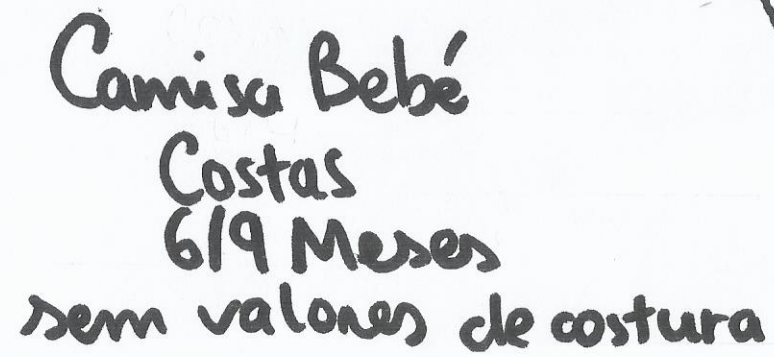 Camisa Bebé
Costas
6/9 Meses
sem valores de costura